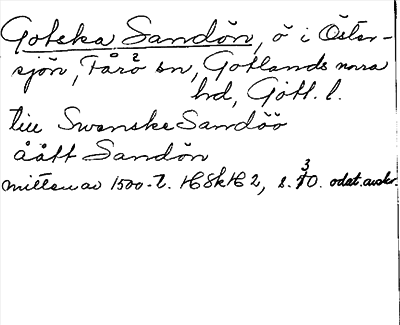 Gotska Sandön, ö i Öster-
sjön, Fårö sn, Gotlands norra
hd, Gotl. l.
till Swenske Sandöö
åått Sandön
mitten av 1500-t. HSkH 2, s. 30. odat. avskr.